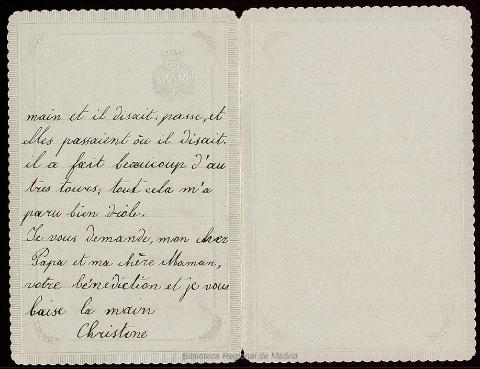 main et il disait: passe, et
elles passaient où il disait.
il a fait beaucoup d'au
tres tours; tout cela m'a
paru bien drôle.
Je vous demande, mon cher
Papa et ma chère Maman,
votre bénédiction et je vous
baise la main
Christine
Biblioteca Regional de Madrid